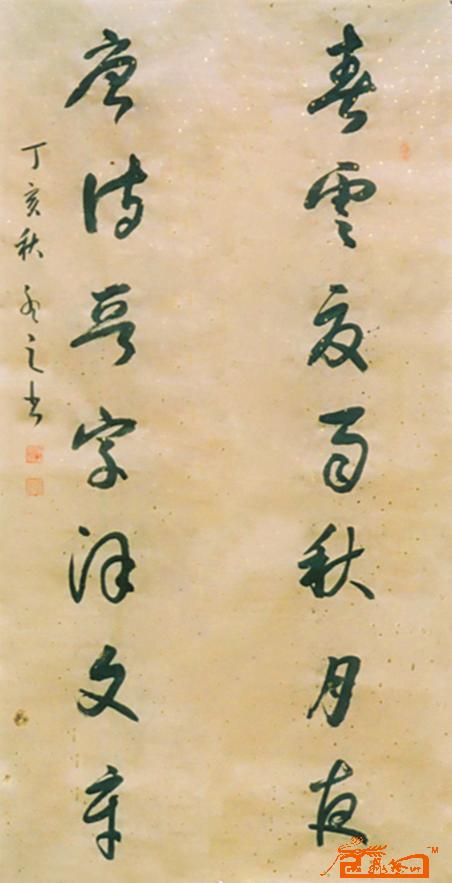 春云夏雨秋月夜
唐诗晋字汉文章
丁亥秋 之书